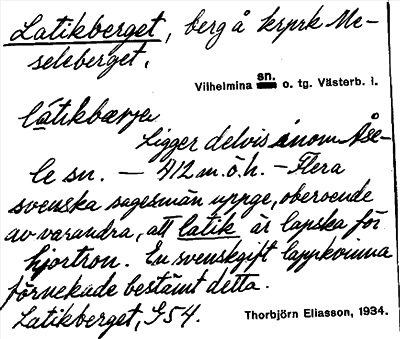 Latikberget, berg å krprk Me-
seleberget.
Vilhelmina sn. o. tg. Västerb. l.
låtikbærje
Ligger delvis inom Åse-
le sn. — 412 m.ö.h. — Flera
svenska sagesmän uppge, oberoende
av varandra, att latik är lapska för
hjortron. En svenskgift lappkvinna
förnekade bestämt detta.
Latikberget, G54.
Thorbjörn Eliasson, 1934.